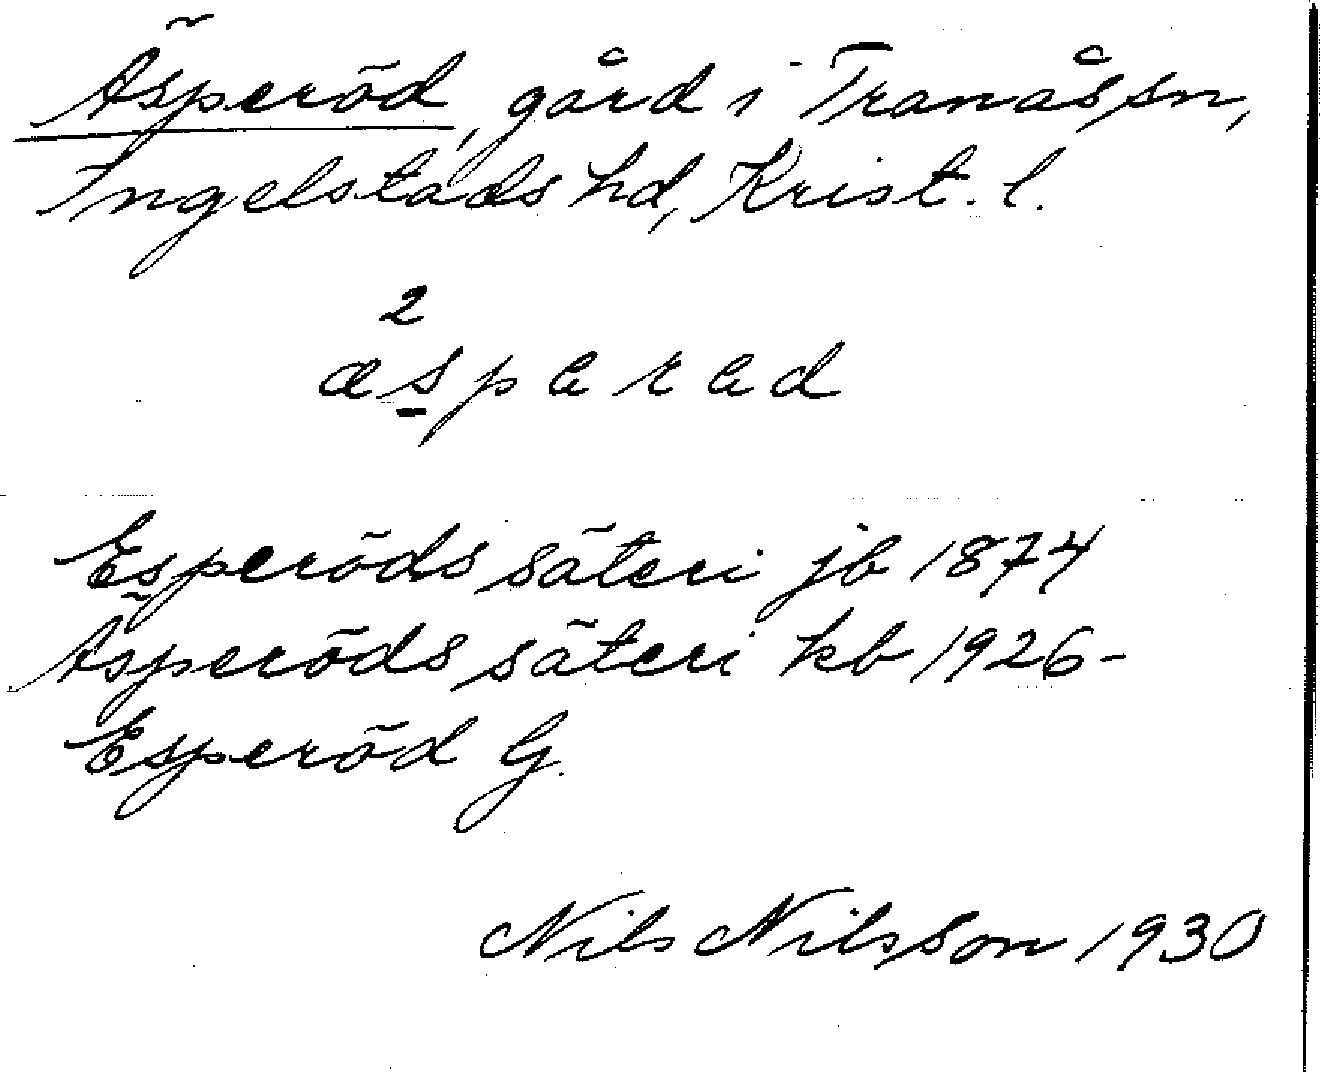 Äsperöd, gård i Tranås sn,
Ingelstads hd, Krist. l.
2
æsparad
Esperöds säteri jb 1874
Äsperöds säteri kb 1926-
Esperöd G.
Nils Nilsson 1930